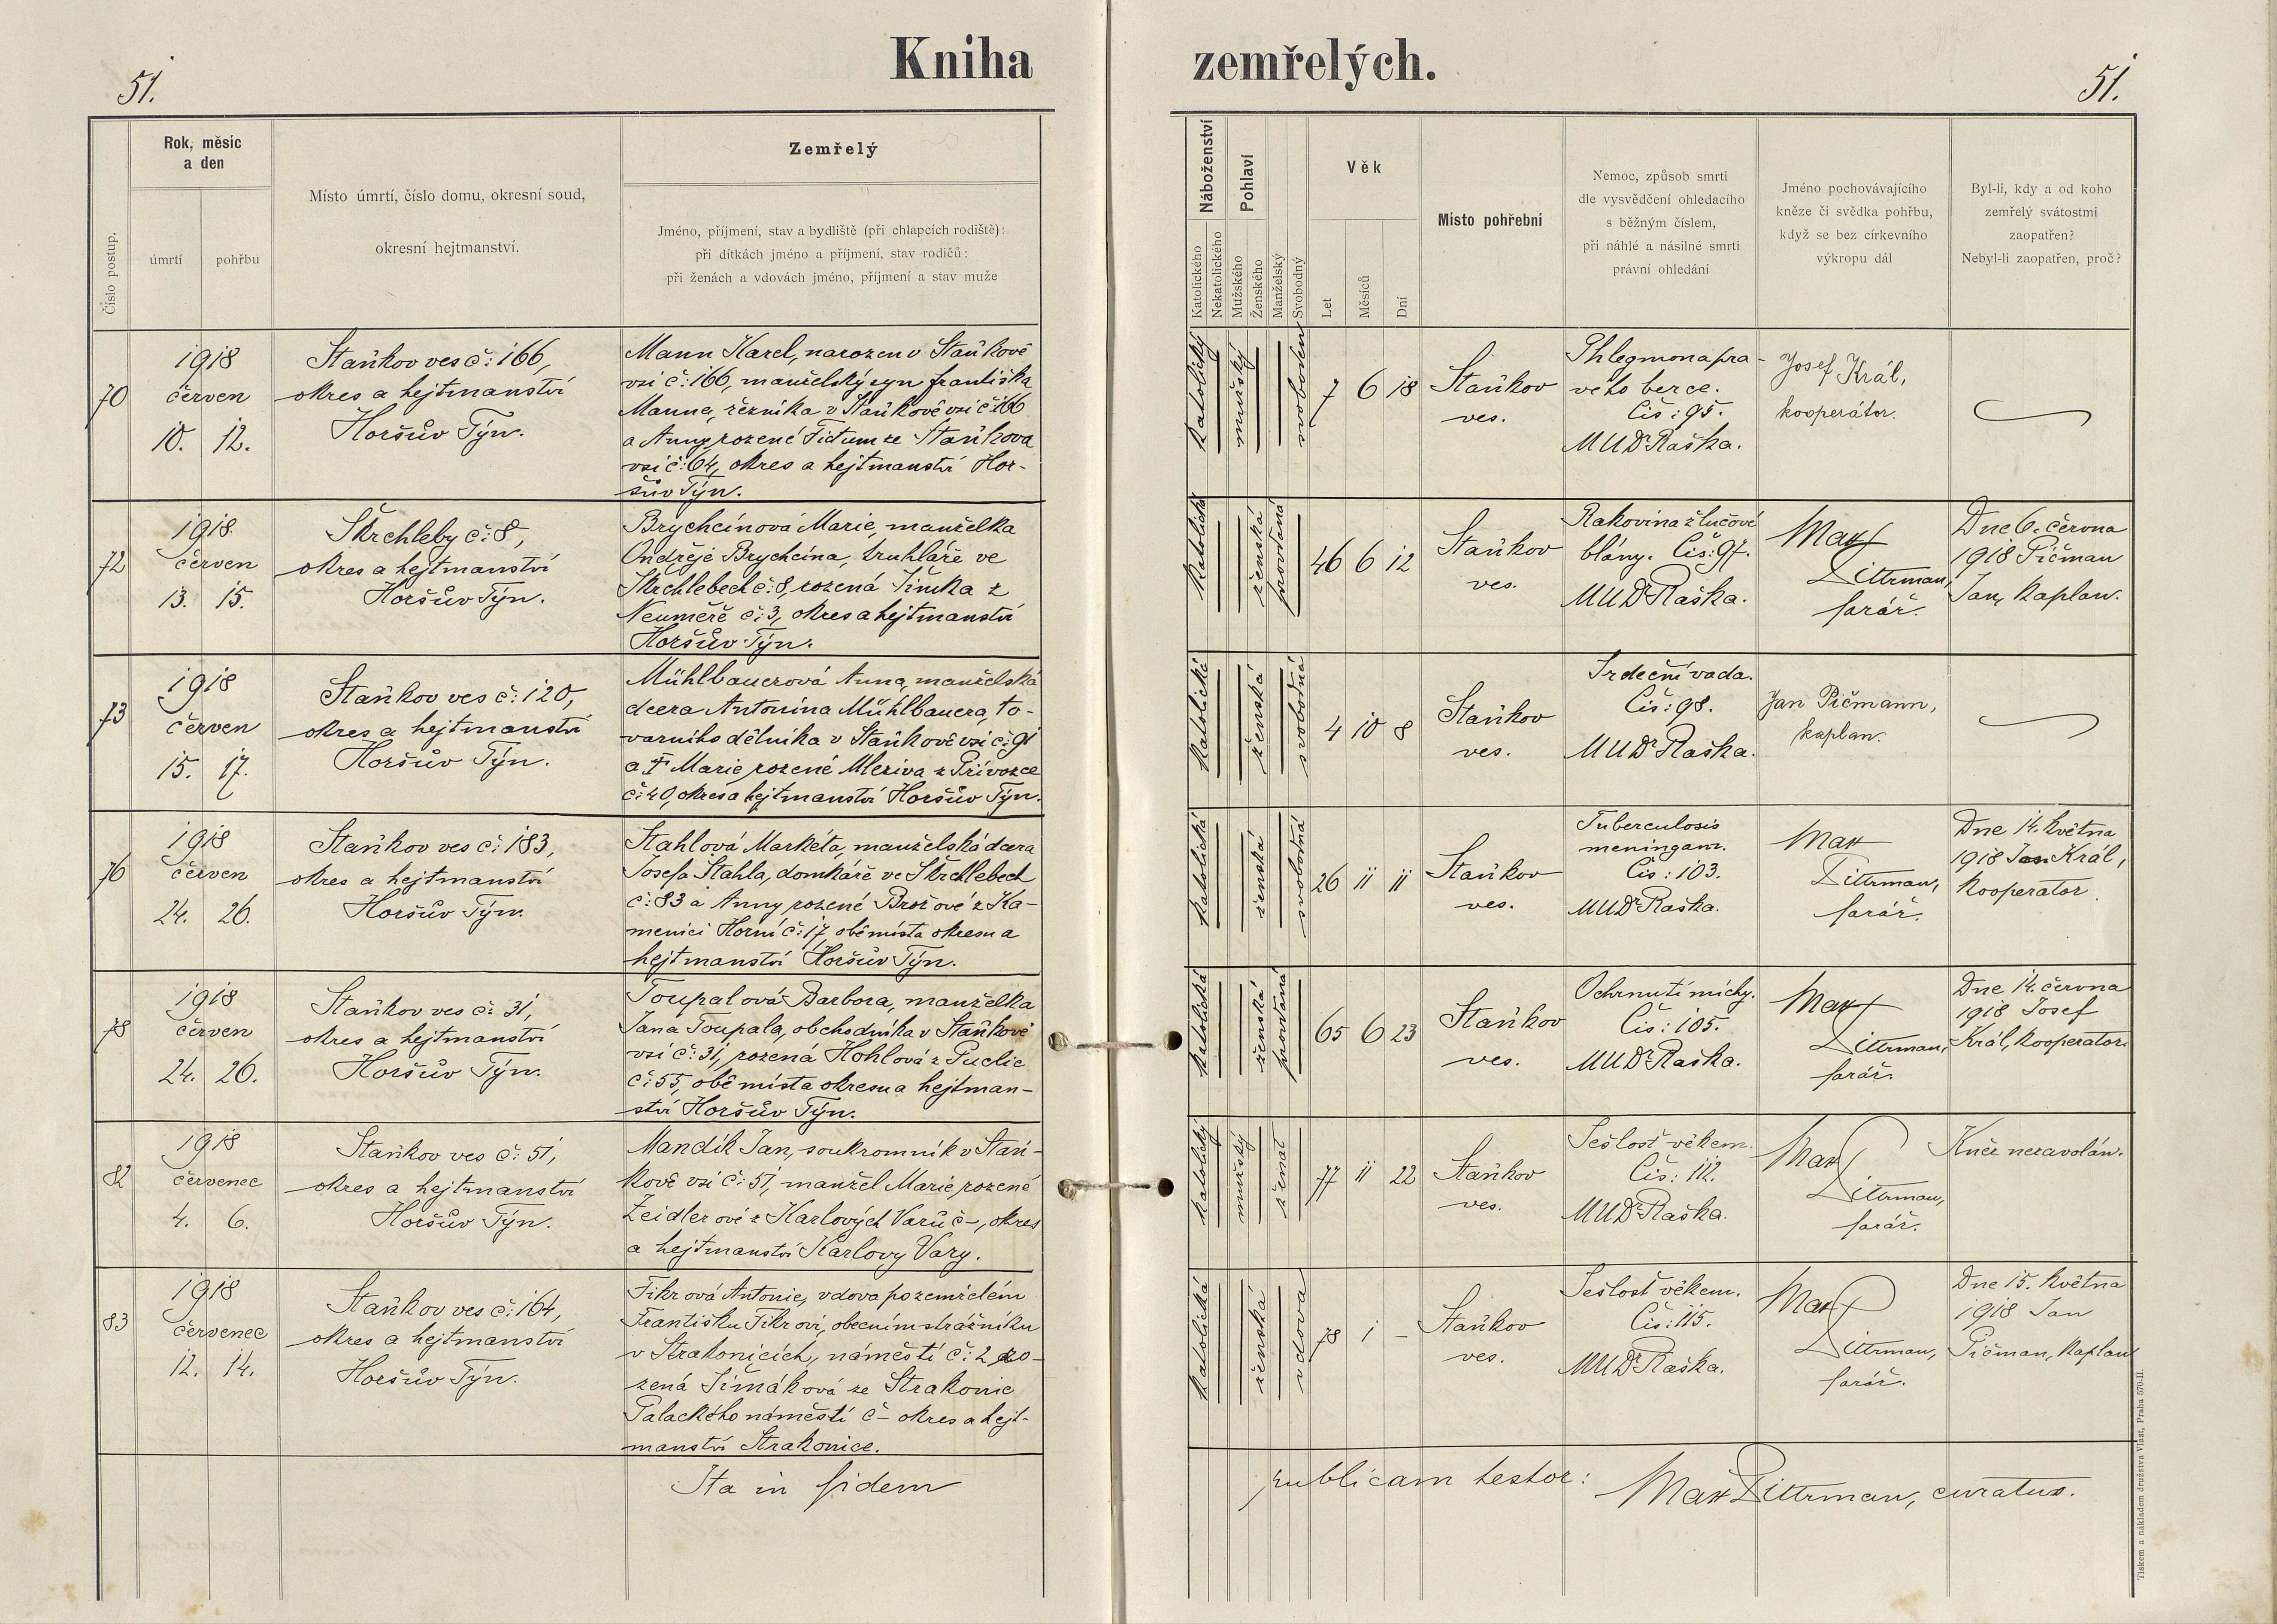 Kniha zemřelých.
51.
51.
Číslo postup.
Rok, měsíc
a den
úmrtí
pohřbu
Místo úmrtí, číslo domu, okresní soud,
okresní hejtmanství.
Zemřelý
Jméno, příjmení, stav a bydliště (při chlapcích rodiště):
při dítkách jméno a příjmení, stav rodičů:
při ženách a vdovách jméno, příjmení a stav muže
Náboženství
Katolického
Nekatolického
Pohlaví
Mužského
Ženského
Manželský
Svobodný
Věk
Let
Měsíců
Dní
Místo pohřební
Nemoc, způsob smrti
dle vysvědčení ohledacího
s běžným číslem,
při náhlé a násilné smrti
právní ohledání
Jméno pochovávajícího
kněze či svědka pohřbu,
když se bez církevního
výkropu dál
Byl-li, kdy a od koho
zemřelý svátostmi
zaopatřen?
Nebyl-li zaopatřen, proč?
70
1918
červen
10. 12.
Staňkov ves č: 166,
okres a hejtmanství
Horšův Týn.
Mann Karel, narozen v Staňkově
vsi č: 166, manželský syn Františka
Manna, řezníka v Staňkově vsi č 166
a Anny rozené Fictum ze Staňkova
vsi č: 64, okres a hejtmanství Hor-
šův Týn.
katolický
mužský
svoboden
7 6 18
Staňkov
ves.
Phlegmona pra-
vého berce.
Čis: 95.
MUDr Raška.
Josef Král,
kooperátor.
72
1918.
červen
13. 15.
Škrchleby č: 8,
okres a hejtmanství
Horšův Týn.
Brychcínová Marie, manželka
Ondřeje Brychcína, truhláře ve
Škrchlebech č: 8, rozená Šimka z
Neuměře č: 3, okres a hejtmanství
Horšův Týn.
katolická
ženská
provdaná
46 6 12
Staňkov
ves.
Rakovina žlučové
blány. Čis: 97.
MUDr Raška.
Max
Dittrman,
farář.
Dne 6. června
1918 Pičman
Jan, kaplan.
73
1918
červen
15. 17.
Staňkov ves č: 120,
okres a hejtmanství
Horšův Týn.
Mühlbauerová Anna, manželská
dcera Antonína Mühlbauera, to-
varního dělníka v Staňkově vsi č: 91
a † Marie rozené Mleziva z Přívozce
č: 40, okres a hejtmanství Horšův Týn.
katolická
ženská
svobodná
4 10 8
Staňkov
ves.
Srdeční vada.
Čis: 98.
MUDr Raška.
Jan Pičmann,
kaplan.
76
1918
červen
24. 26.
Staňkov ves č: 183,
okres a hejtmanství
Horšův Týn.
Stahlová Markéta, manželská dcera
Josefa Stahla, domkáře ve Škrchlebech
č: 83 a Anny rozené Brožové z Ka-
menici Horní č: 17, obě místa okresu a
hejtmanství Horšův Týn.
katolická
ženská
svobodná
26 11 11
Staňkov
ves.
Tuberculosis
meningam.
Čis: 103.
MUDr Raška.
Max
Dittrman,
farář.
Dne 14. května
1918 Jan Král,
kooperator.
78
1918
červen
24. 26.
Staňkov ves č: 31,
okres a hejtmanství
Horšův Týn.
Toupalová Barbora, manželka
Jana Toupala, obchodníka v Staňkově
vsi č: 31, rozená Hohlová z Puclic
č: 55, obě místa okresu a hejtman-
ství Horšův Týn.
katolická
ženská
provdaná
65 6 23
Staňkov
ves.
Ochrnutí míchy.
Čis: 105.
MUDr Raška.
Max
Dittrman,
farář.
Dne 14. června
1918 Josef
Král, kooperator.
82
1918
červenec
4. 6.
Staňkov ves č: 51,
okres a hejtmanství
Horšův Týn.
Mandík Jan, soukromník v Staň-
kově vsi č: 51, manžel Marie, rozené
Zeidlerové z Karlových Varů č-, okres
a hejtmanství Karlovy Vary.
katolický
mužský
ženat
77 11 22
Staňkov
ves.
Sešlost věkem.
Čis: 112.
MUDr Raška.
Max
Dittrman,
farář.
Kněz nezavolán.
83
1918
červenec
12. 14.
Staňkov ves č: 164,
okres a hejtmanství
Horšův Týn.
Fikrová Antonie, vdova po zemřelém
Františku Fikrovi, obecním strážníku
v Strakonicích, náměstí č: 2, ro-
zená Šimáková ze Strakonic
Palackého náměstí č- okres a hejt-
manství Strakonice.
katolická
ženská
vdova
78 1 -
Staňkov
ves.
Sešlost věkem.
Čis: 115.
MUDr Raška.
Max
Dittrman,
farář.
Dne 15. května
1918 Jan
Pičman, kaplan
Ita in fidem publicam testor: Max Dittrman, curatus.
Tiskem a nákladem družstva Vlast, Praha 570-II.